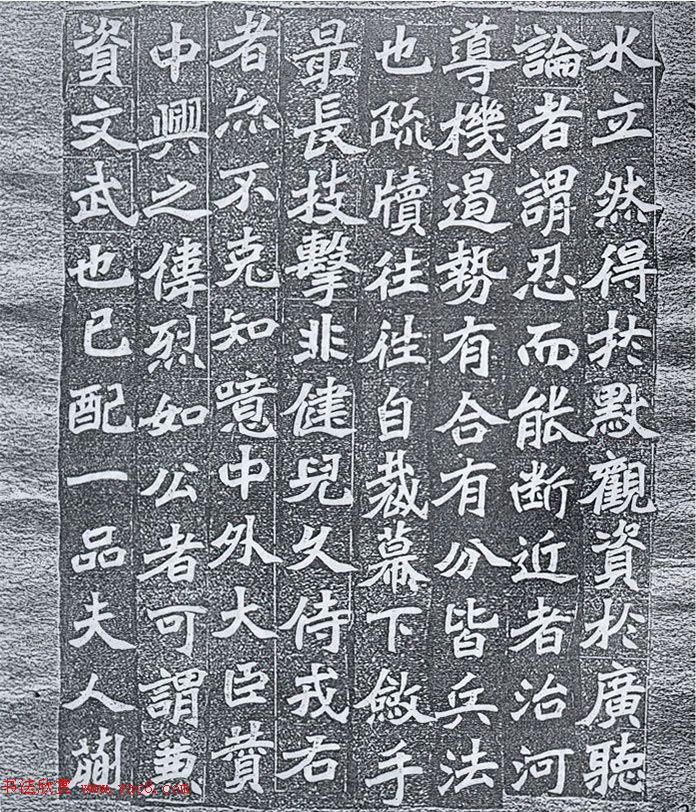 水立然得扵默觀資於廣聽
論者謂忍而能断近者治河
導機遏勢有合有分皆兵法
也疏牘往往自裁幕下斂手
最長技擊非健兒久侍戎右
者亦不克知噫中外大臣贊
中興之偉烈如公者可謂兼
資文武也已配一品夫人蒯
书法欣赏 www.yac8.com